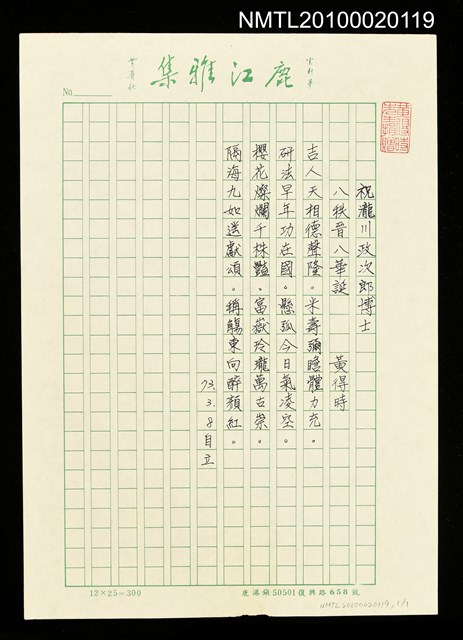 NMTL20100020119
鹿江雅集
No
祝瀧川政次郎博士
八秩晉八華誕 黃得時
吉人天相德聲隆。米壽彌瞻體力充。
研法早年功在國。懸弧今日氣凌空。
櫻花燦爛千株豔。富嶽玲瓏萬古崇。
隔海九如遙獻頌。稱觴東向醉顏紅。
73.3.8自立
12×25=300
鹿港鎮50501復興路658號
NMTL20100020119, 1/1